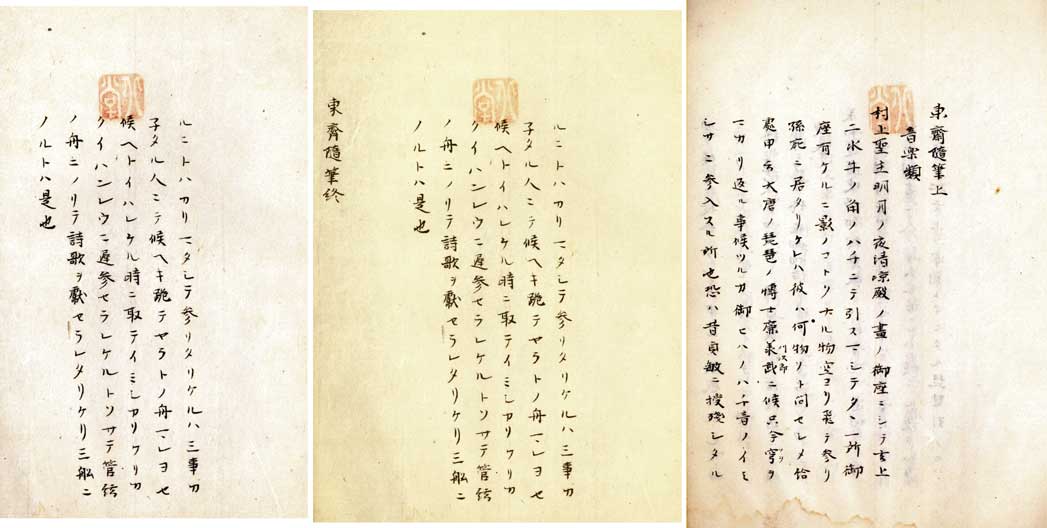 東齋隨筆上
音楽類
村上聖主明月ノ夜清凉殿ノ晝ノ御座ニシテ玄上
ヲ水牛ノ角ノハチニテ引スマシテタヽ一所御
座有ケルニ影ノコトクナル物空ヨリ飛テ参リ
孫庇ニ居タリケレハ彼ハ何物ソト問セシメ給
處申云大唐ノ琵琶ノ博士廉義武ニ候只今穹ヲ
マカリ返ル事候ツルカ御ヒハノハチ音ノイミ
シサニ参入スル所也恐ハ昔貞敏ニ授殘シタル
ルコトハカリマタシテ参リタリケルハ三事カ
子タル人ニテ候ヘキ跪テヤヽラトノ舟マレヨセ
候ヘトイハレケル時ニ取テイミシカリケリカ
クイハンレウニ遅参セラレケルトソサテ管絃
ノ舟ニノリテ詩歌ヲ獻セラレタリケリ三舩ニ
ノルトハ是也
東齊隨筆終
ルコトハカリマタシテ参リタリケルハ三事カ
子タル人ニテ候ヘキ跪テヤヽラトノ舟マレヨセ
候ヘトイハレケル時ニ取テイミシカリケリカ
クイハンレウニ遅参セラレケルトソサテ管絃
ノ舟ニノリテ詩歌ヲ獻セラレタリケリ三舩ニ
ノルトハ是也